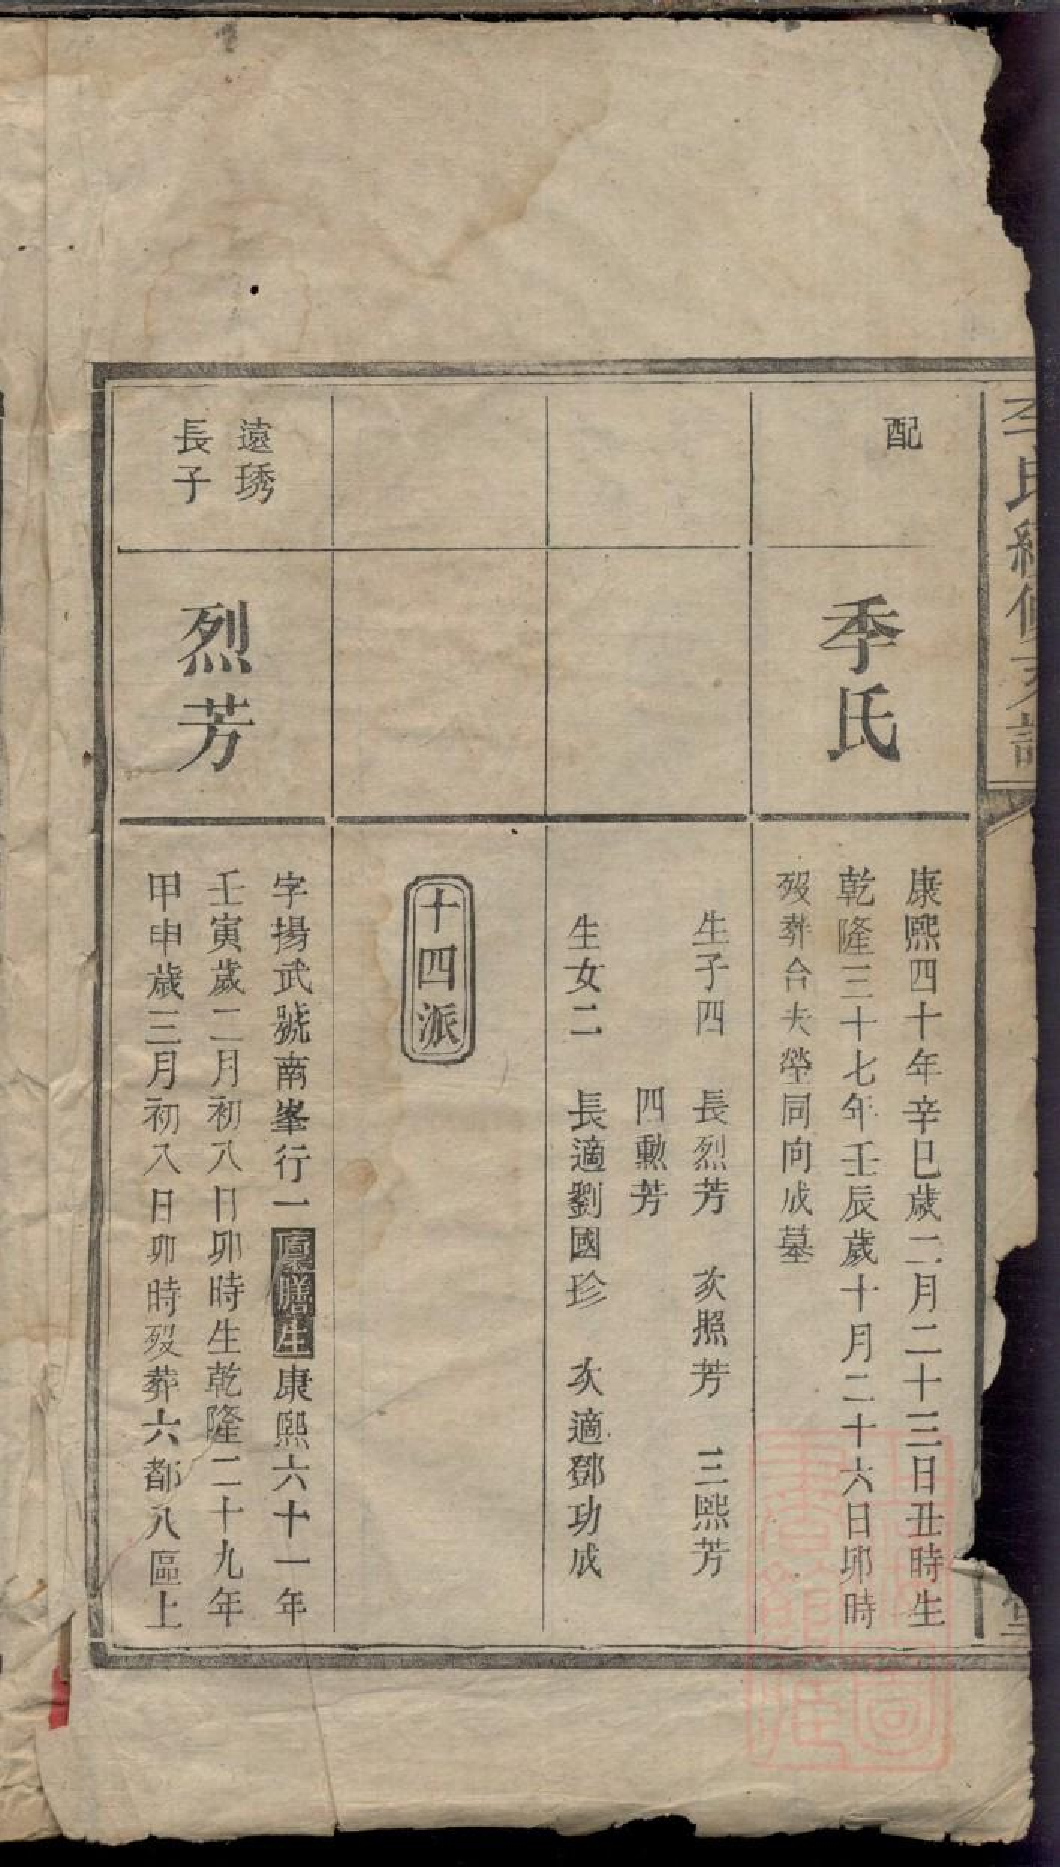 李氏續修支譜
配
季氏
康熙四十年辛巳歲二月二十三日丑時生
乾隆三十七年壬辰歲十月二十六日卯時
歿葬合夫塋同向成墓
生子四 長烈芳 次照芳 三熙芳
四勲芳
生女二 長適劉國珍 次適鄧功成
十四派
遠琇
長子
烈芳
字揚武號南峯行一廩膳生康熙六十一年
壬寅歲二月初八日卯時生乾隆二十九年
甲申歲三月初八日卯時歿葬六都八區上